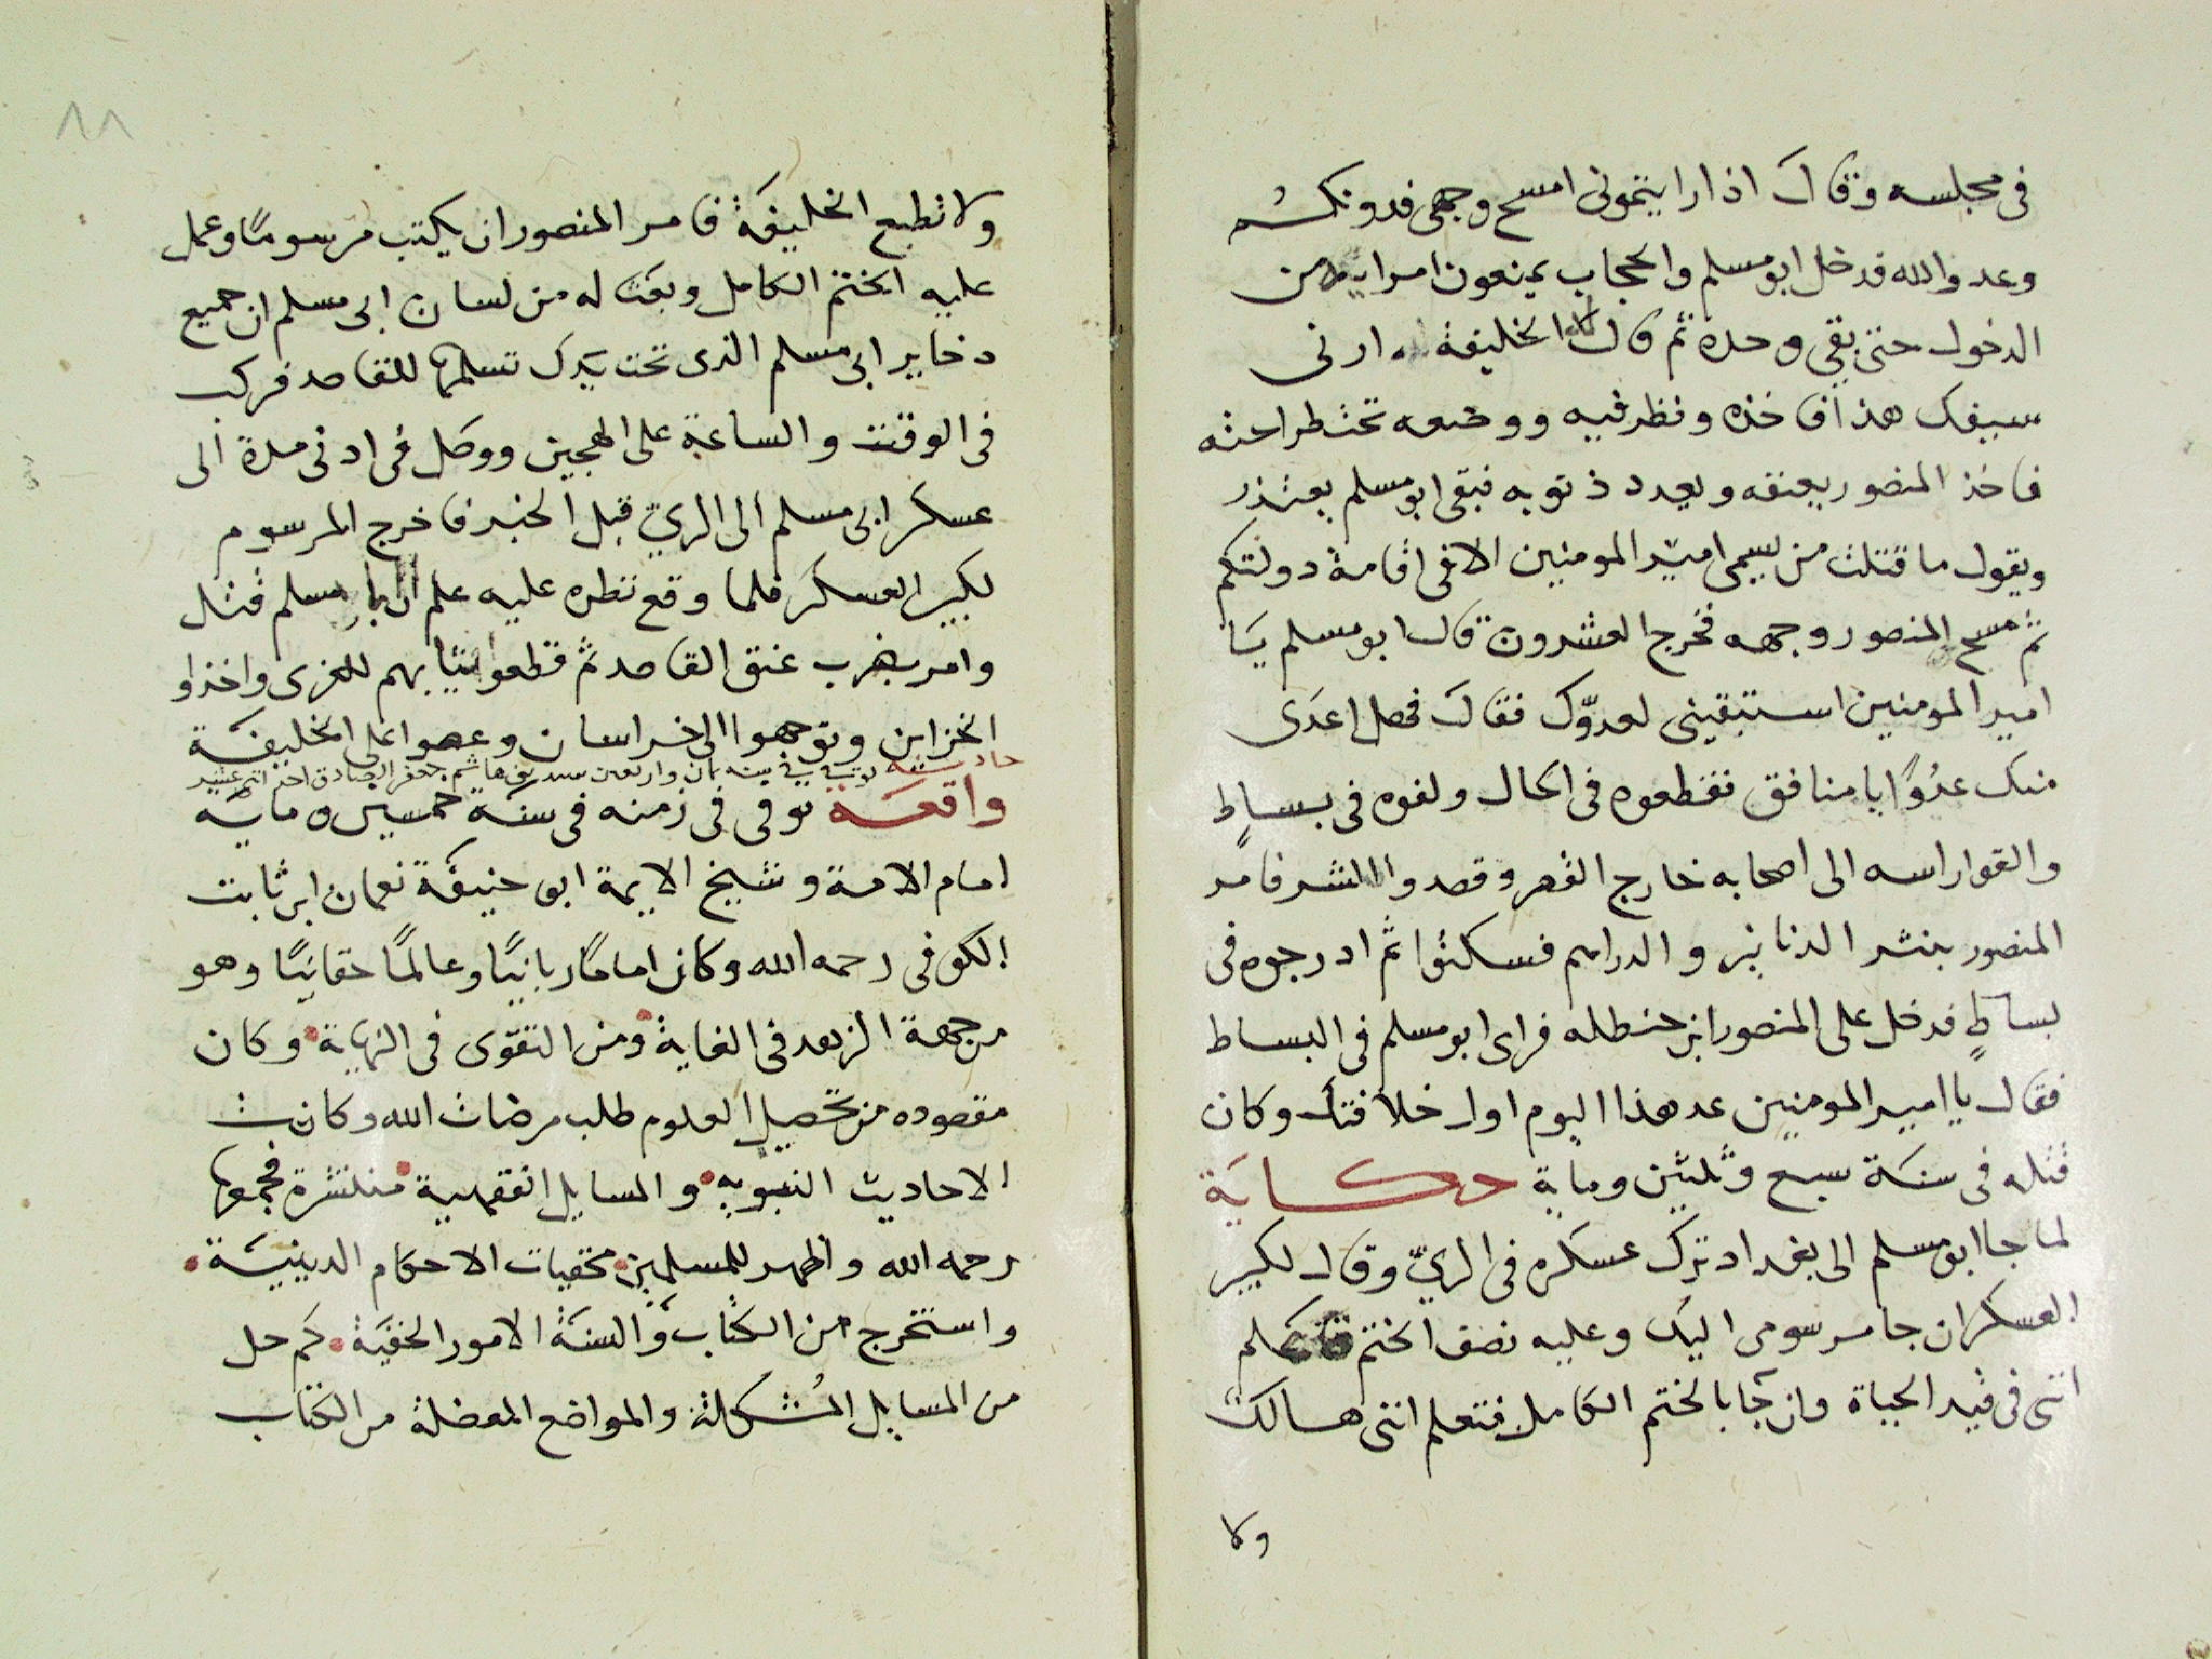 فى مجلسه وقال اذا رايتمونى امسح وجهى فدونكم
وعدو الله فدخل ابو مسلم والحجاب يمنعون امرايه من
الدخول حتى بقى وحده ثم قال الخليفة ارنى
سيفك هذا فاخذه ونظر فيه ووضعه تحت طراحته
فاخذ المنصور يعنفه ويعدد ذنوبه فبقى ابو مسلم يعتذر
ويقول ما قتلت من يسمى امير المومنين الا فى اقامة دولتكم
ثم مسح المنصور وجهه فخرج العشرون قال ابو مسلم يا
امير المومنين استبقينى لعدوّك فقال فهل اعدى
منك عدُوًّا يا منافق فقطعوه فى الحال ولفوه فى بساطٍ
والقوا راسه الى اصحابه خارج القصر وقصدوا الشر فامر
المنصور بنثر الدنانير والدراهم فسكنوا ثم ادرجوه فى
بساطٍ فدخل على المنصور ابن حنطله فراى ابو مسلم فى البساط
فقال يا امير المومنين عد هذا اليوم اول خلافتك وكان
قتله فى سنة سبع وثلثين وماية حكاية
لما جا ابو مسلم الى بغداد ترك عسكره فى الريّ وقال لكبير
العسكر ان جا مرسومى اليك وعليه نصف الختم فتعلم
اننى فى قيد الحياة وان جا بالختم الكامل فتعلم اننى هالك
ولا
٨٨
ولا تطيع الخليفة فامر المنصور ان يكتب مرسومًا وعمل
عليه الختم الكامل وبعث له من لسان ابى مسلم ان جميع
دخاير ابى مسلم الذى تحت يدك تسلمها للقاصد فركب
فى الوقت والساعة على الهجين ووصل فى ادنى مدة الى
عسكر ابى مسلم الى الريّ قبل الخبر فاخرج المرسوم
لكبير العسكر فلما وقع نظره عليه علم ان ابا مسلم قتل
وامر بضرب عنق القاصد ثم قطعوا ثيابهم للعزى واخذوا
الخزاين وتوجهوا الى خراسان وعصوا على الخليفة
حادثة توفى فى سنة ثمان واربعين جعفر الصادق
واقعة توفى فى زمنه فى سنة خمسين وماية
امام الامة وشيخ الايمة ابو حنيفة نعمان ابن ثابت
الكوفى رحمه الله وكان امامًا ربانيًا وعالمًا حقانيًا وهو
من جهة الزهد فى الغاية ومن التقوى فى النهاية وكان
مقصوده من تحصيل العلوم طلب مرضات الله وكانت
الاحاديث النبويه والمسايل الفقهية منتشرة فجمعها
رحمه الله واظهر للمسلمين مخفيات الاحكام الدينية
واستخرج من الكتاب والسنة الامور الخفية كم حل
من المسايل المُشكلة والمواضع المعضلة من الكتاب